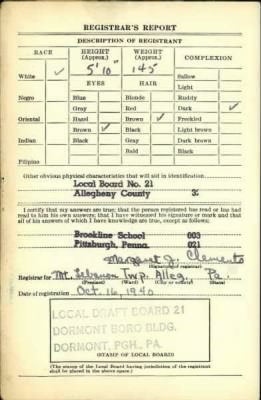 REGISTRAR'S REPORT
DESCRIPTION OF REGISTRANT
RACE HEIGHT (Approx.) WEIGHT (Approx.) COMPLEXION
White ✓ 5' 10" 145 Sallow
Light
EYES HAIR
Negro Blue Blonde Ruddy
Gray Red Dark ✓
Oriental Hazel Brown ✓ Freckled
Brown ✓ Black Light brown
Indian Black Gray Dark brown
Bald Black
Filipino
Other obvious physical characteristics that will aid in identification
Local Board No. 21
Allegheny County
I certify that my answers are true; that the person registered has read or has had read to him his own answers; that I have witnessed his signature or mark and that all of his answers of which I have knowledge are true, except as follows:
Brookline School 003
Pittsburgh, Penna. 021
Margaret J. Clements
(Signature of registrar)
Registrar for Mt. Lebanon Twp. Alleg. Pa.
(Precinct) (Ward) (City or county) (State)
Date of registration Oct. 16, 1940
LOCAL DRAFT BOARD 21
DORMONT BORO BLDG.
DORMONT, PGH., PA.
(STAMP OF LOCAL BOARD)
(The stamp of the Local Board having jurisdiction of the registrant shall be placed in the above space.)